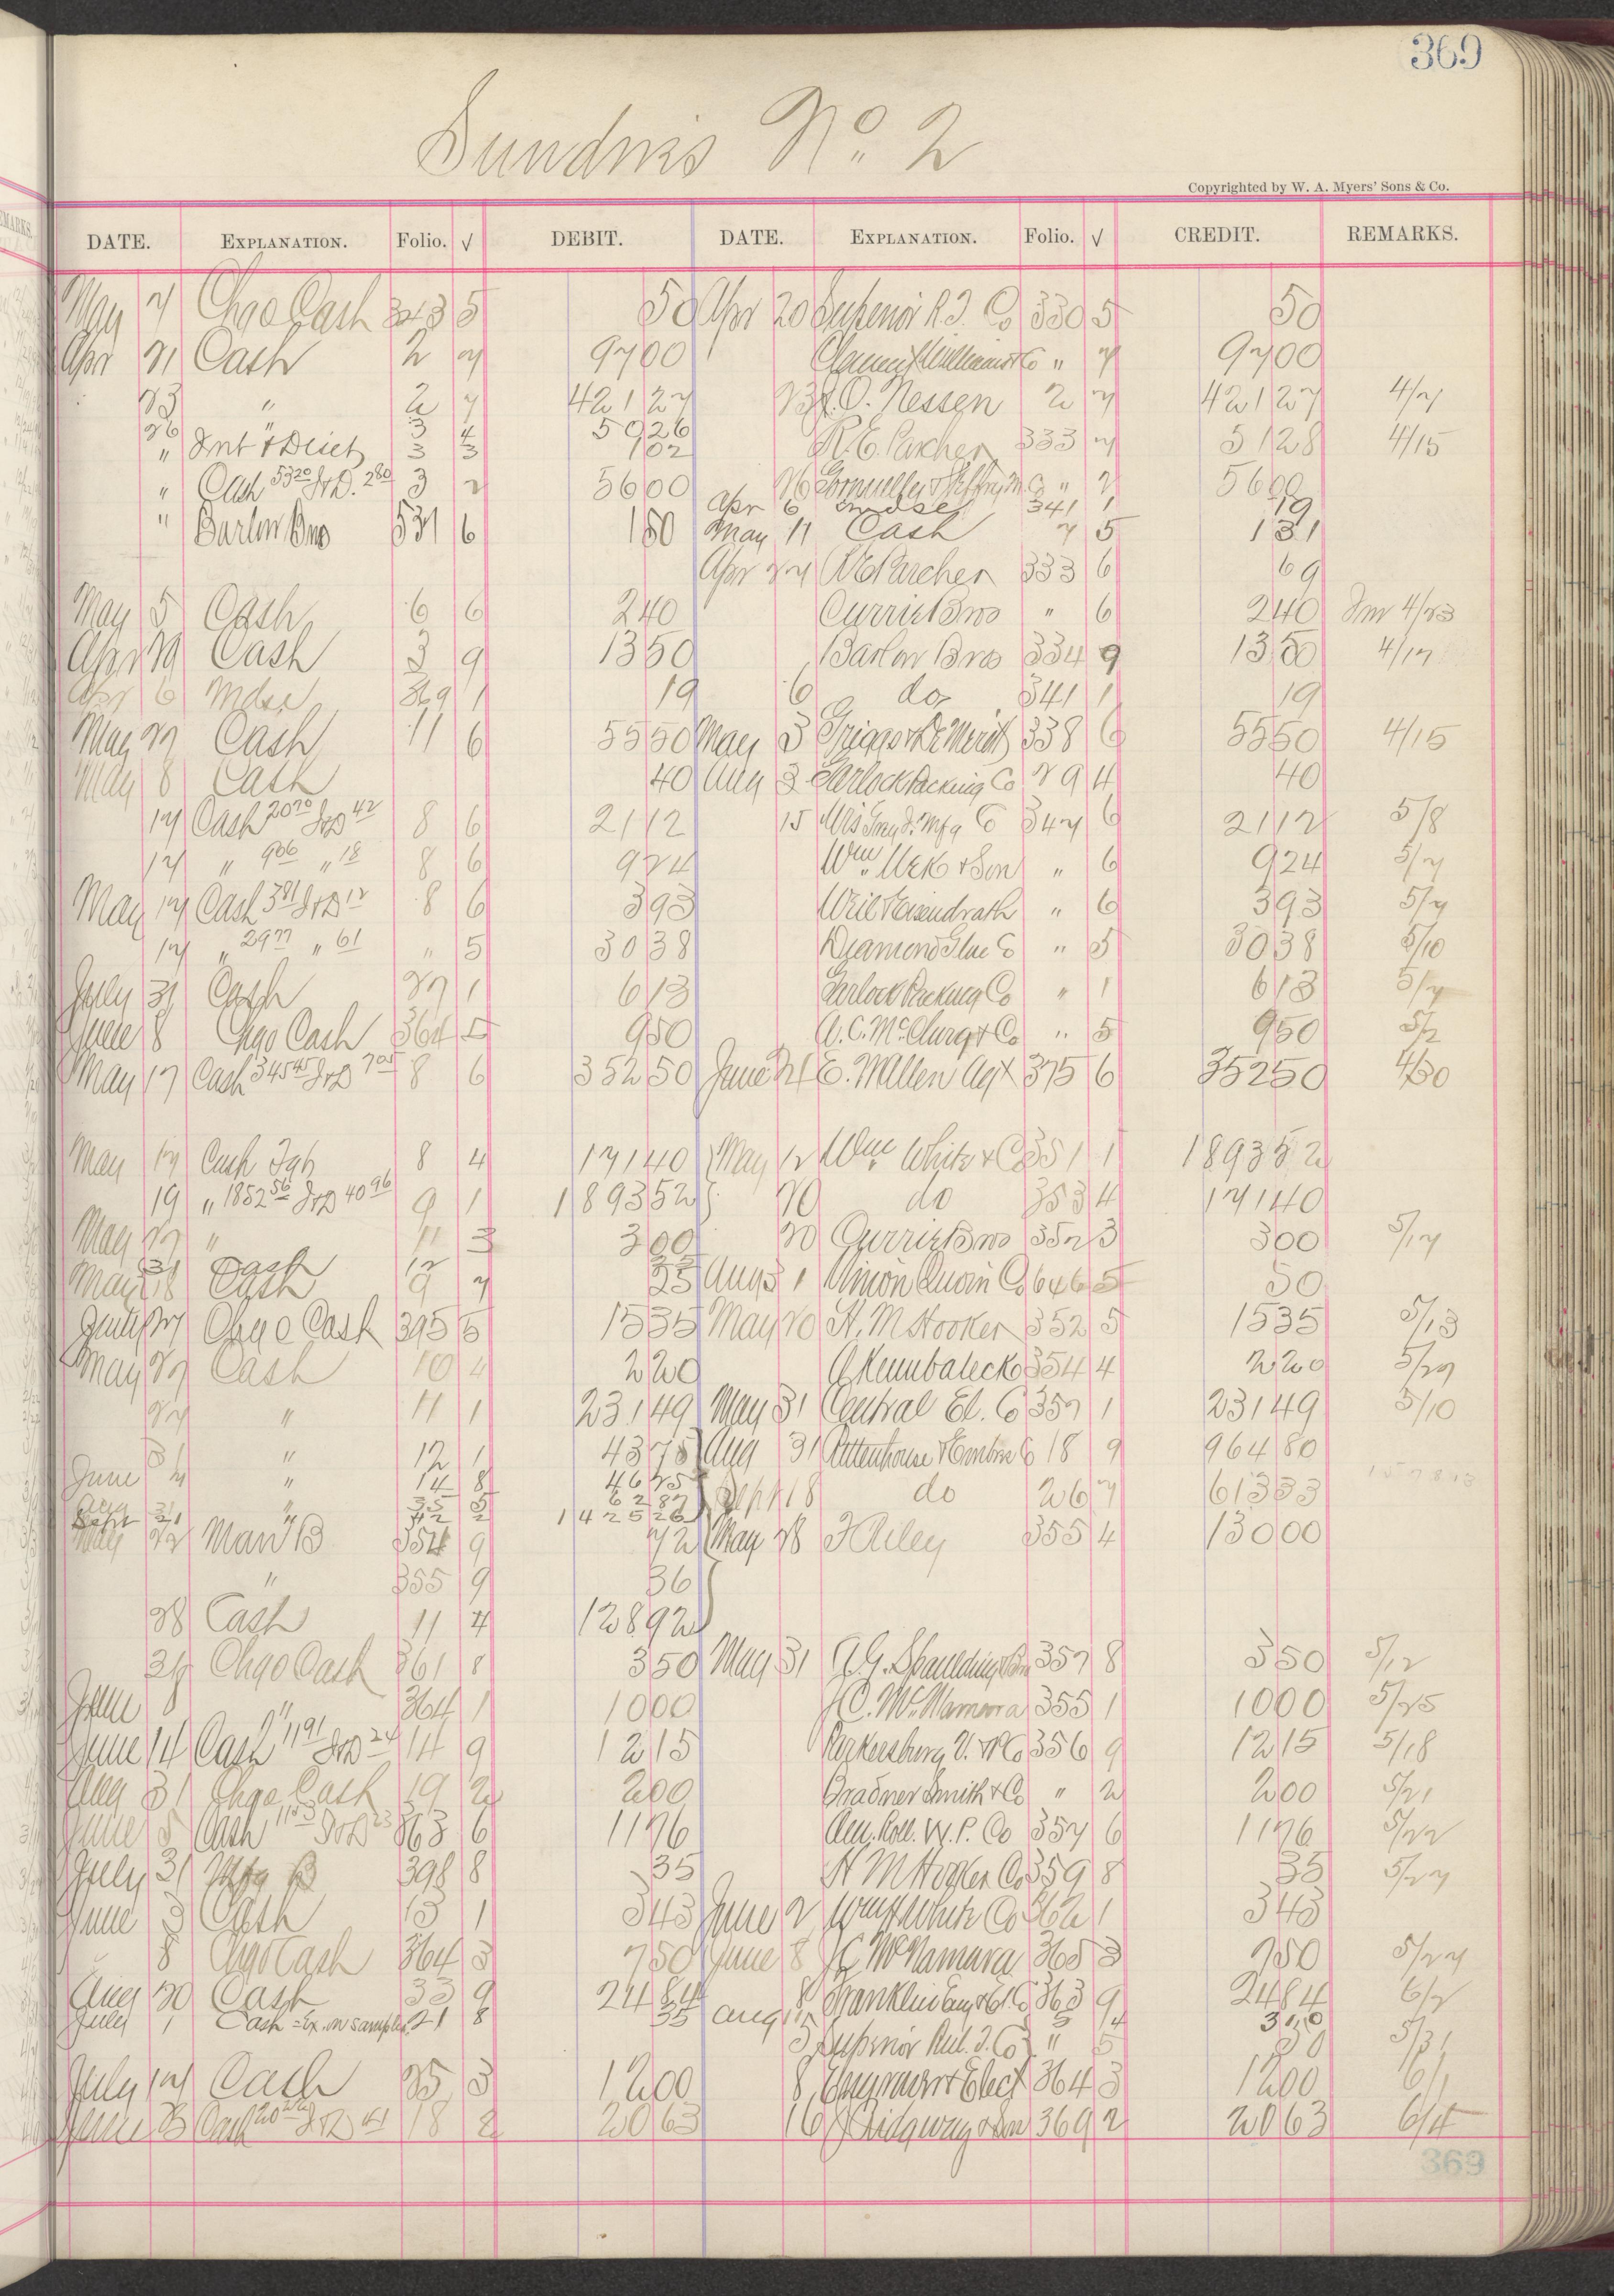 369
Sundries No. 2
Copyrighted by W. A. Myers' Sons & Co.
DATE. EXPLANATION. Folio. √ DEBIT. DATE. EXPLANATION. Folio. √ CREDIT. REMARKS.
May 7 Chgo Cash 343 5 50 Apr 20 Superior R. T. Co 330 5 50
Apr 21 Cash 2 7 9700 " 7 9700
23 " 2 7 42127 23 O. Nessen 2 7 42127 4/7
26 " 3 4 5026 R. E. Parcher 333 7 5128 4/15
" Int & Disct 3 3 102
" Cash 5320 I&D. 280 3 2 5600 26 Co " 2 5600
Apr 6 mdse 341 1 19
" Barlow Bros 531 6 150 May 11 Cash 7 5 131
Apr 27 R E Parcher 333 6 69
May 5 Cash 6 6 240 Currie Bros " 6 240 Inv 4/23
Apr 29 Cash 3 9 1350 Barlow Bros 334 9 1350 4/17
Apr 6 Mdse 369 1 19 6 do 341 1 19
May 27 Cash 11 6 5550 May 3 Griggs & DeMerit 338 6 5550 4/15
May 8 Cash 40 Aug 3 Garlock Packing Co 29 4 40
17 Cash 2070 I&D 42 8 6 2112 15 Mfg Co 347 6 2112 5/8
17 " 906 " 18 8 6 924 Wm & Son " 6 924 5/7
May 17 Cash 381 I&D 12 8 6 393 Weil & Eisendrath " 6 393 5/7
17 " 2977 " 61 " 5 3038 Diamond Glue Co " 5 3038 5/10
July 31 Cash 27 1 613 Garlock Packing Co " 1 613 5/7
June 8 Chgo Cash 364 5 950 A. C. McClurg & Co " 5 950 5/2
May 17 Cash 34545 I&D 705 8 6 35250 June 21 E. M Allen Agt 375 6 35250 4/30
May 17 Cash 8 4 17140 May 12 Wm White & Co 351 1 189352
19 " 185256 I&D 4096 9 1 189352 20 do 353 4 17140
May 27 " 11 3 300 20 Currie Bros 352 3 300 5/17
31 Cash 12 25
May 18 Cash 9 7 25 Aug 31 Union Co 646 5 50
July 27 Chgo Cash 395 5 1535 May 20 H. M Hooker 352 5 1535 5/13
May 27 Cash 10 4 220 354 4 220 5/27
27 " 11 1 23149 May 31 Central El. Co 357 1 23149 5/10
31 " 12 1 4375 Aug 31 Rittenhouse & Embree Co 18 9 96480
June 4 " 14 8 4625 Sept 18 do 26 7 61333
Aug 31 " 35 5 6287
Sept 21 " 42 2 142526
May 22 Man B 354 9 72 May 28 F Riley 355 4 13000
" 355 9 36
28 Cash 11 4 12892
Chgo Cash 361 8 350 May 31 A. G. Spaulding & Bro 357 8 350 5/12
June 8 " 364 1 1000 J C. McNamara 355 1 1000 5/25
June 14 Cash 1191 I&D 24 14 9 1215 Parkersburg Co 356 9 1215 5/18
Aug 31 Chgo Cash 19 2 200 Bradner Smith & Co " 2 200 5/21
June 5 Cash 1153 I&D 23 363 6 1176 Am. Roll. W. P. Co 357 6 1176 5/22
July 31 Mfg B 398 8 35 H M Hooker Co 359 8 35 5/27
June 3 Cash 13 1 343 June 2 Wm White Co 362 1 343
8 Chgo Cash 364 3 750 June 8 J C McNamara 365 3 750 5/27
Aug 30 Cash 33 9 2484 8 Franklin Eng & El. Co 363 9 2484 6/2
July 1 Cash = Ex. on samples 21 8 35 Aug 5 4
5 Superior Rul. I. Co " 5 5/31
July 14 Cash 25 3 1200 8 Engraver & Elect 364 3 1200 6/1
June 23 Cash I&D 41 18 2 2063 16 J Ridgway & Son 369 2 2063 6/4
369